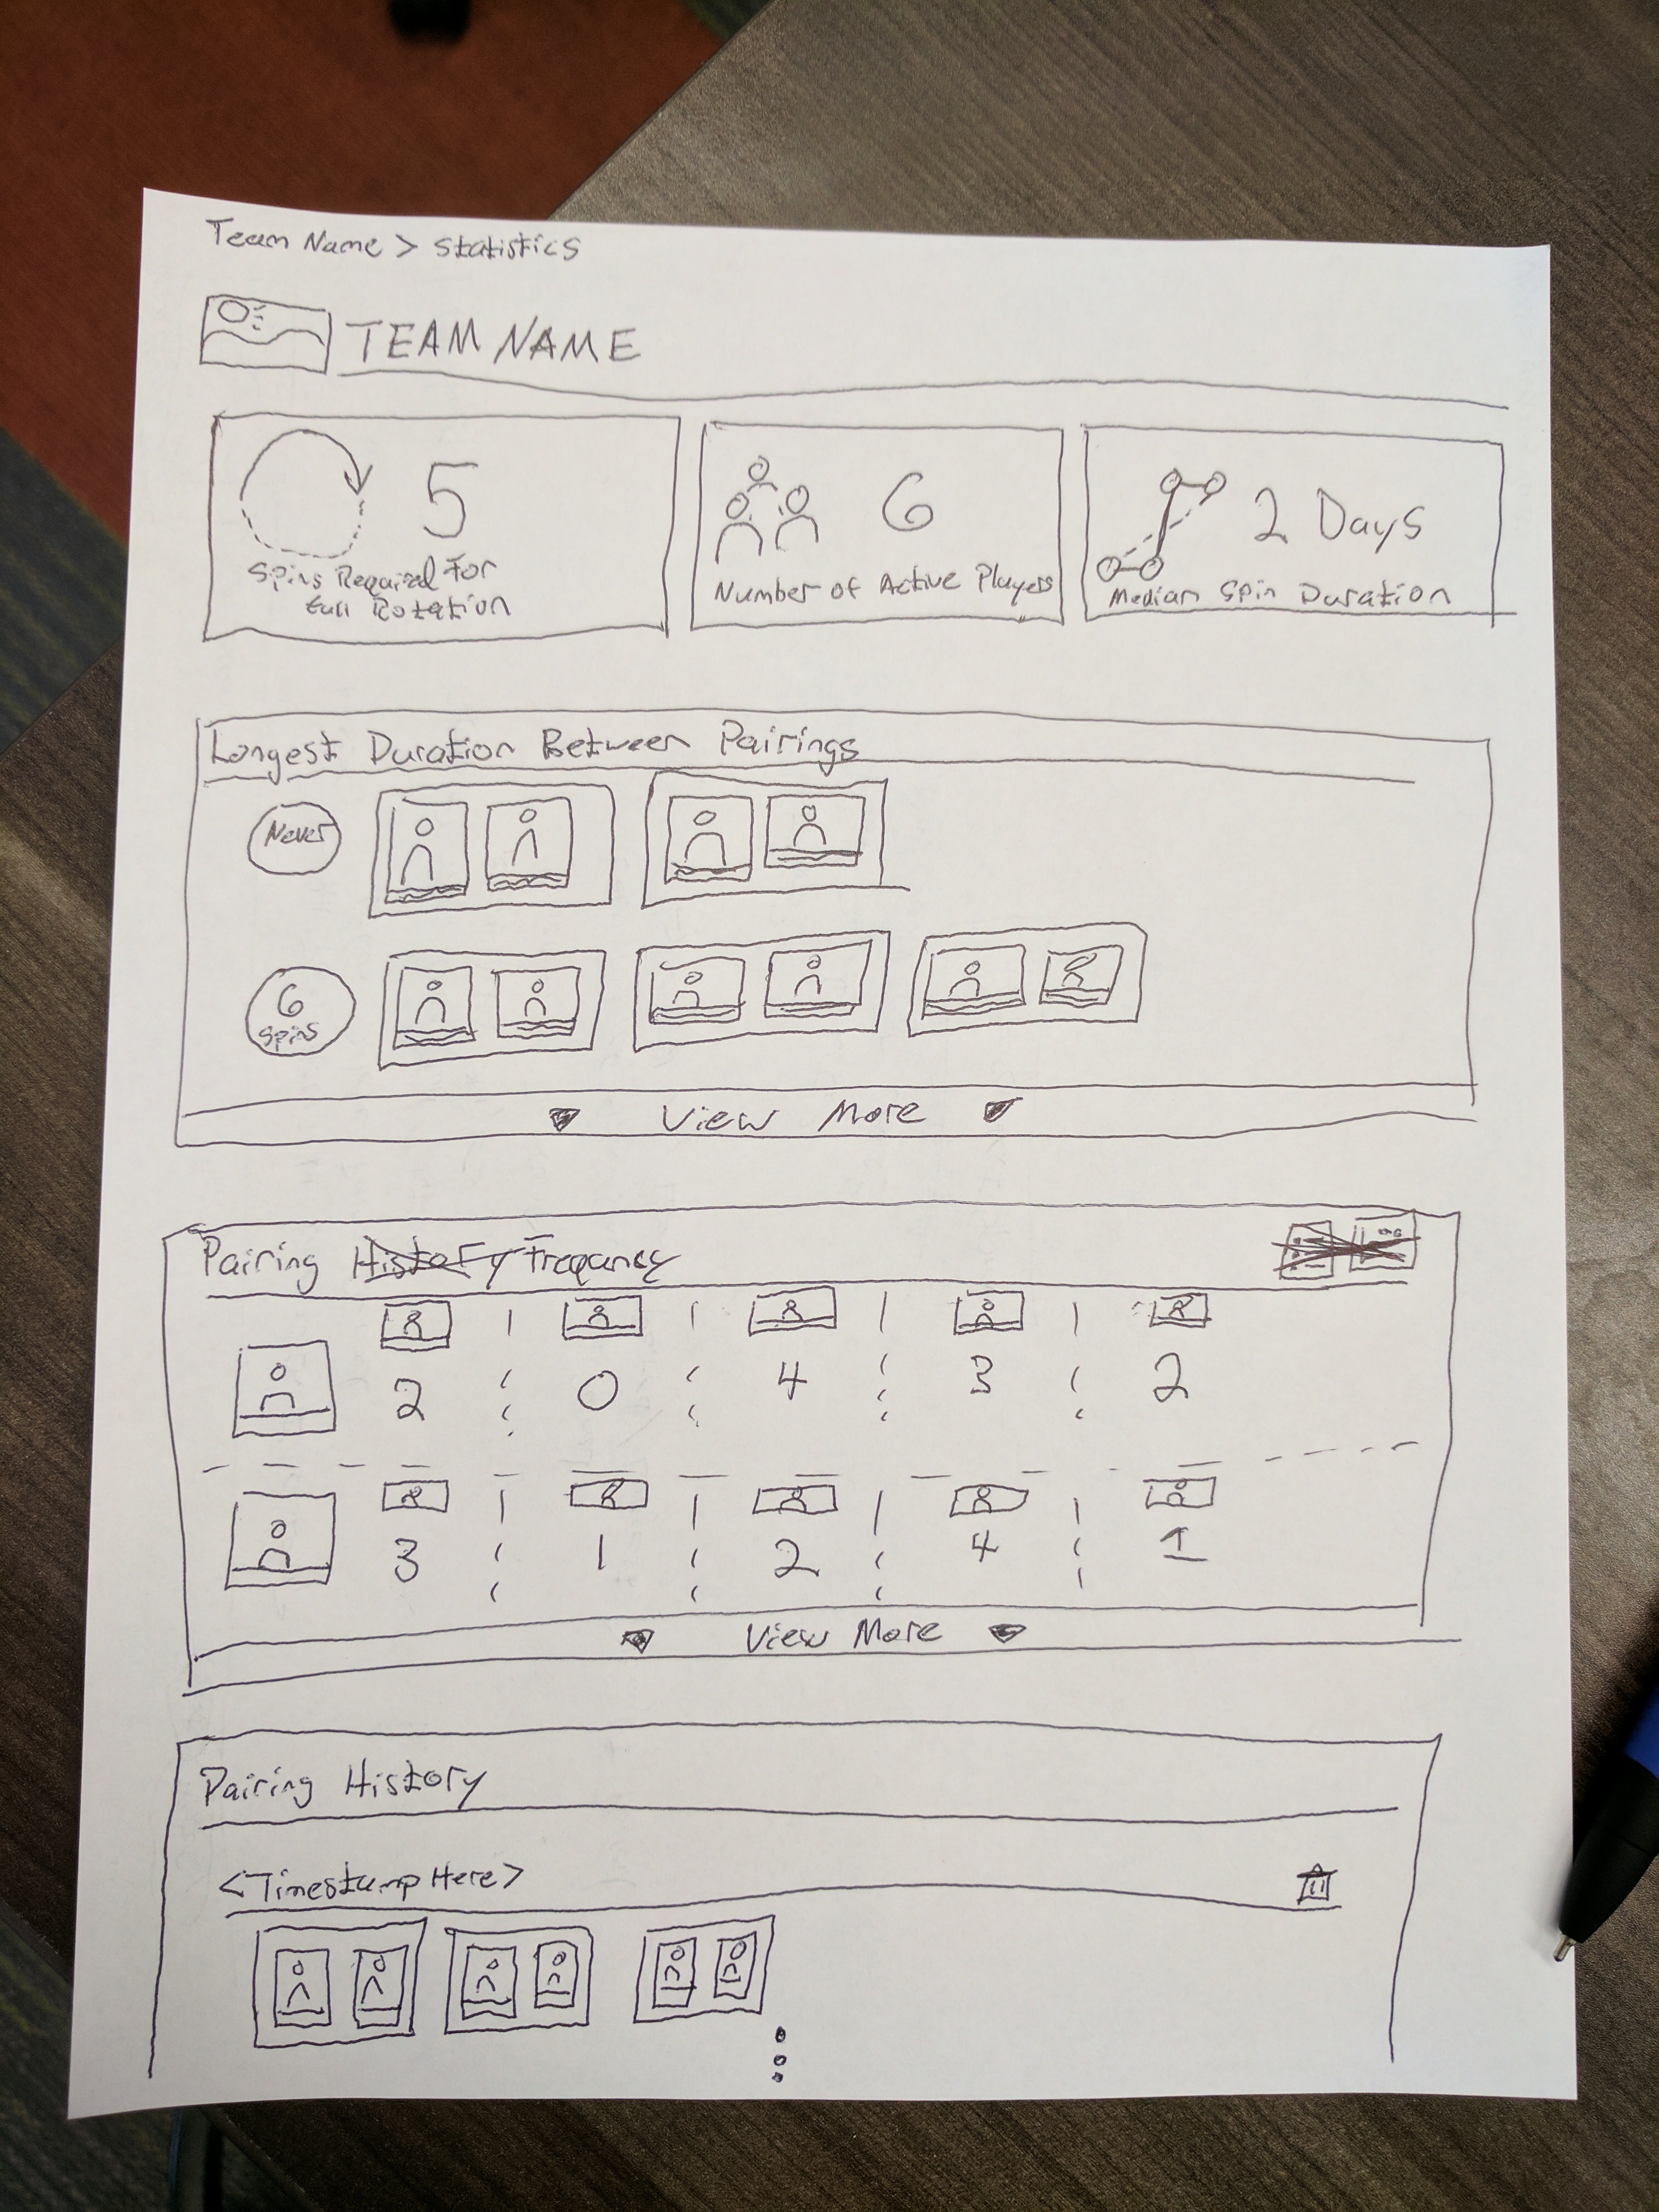 Team Name > Statistics
TEAM NAME
5
Spins Required For
Full Rotation
6
Number of Active Players
2 Days
Median Spin Duration
Longest Duration Between Pairings
Never
6
Spins
View More
Pairing History Freqancy
2 0 4 3 2
3 1 2 4 1
View More
Pairing History
<Timestamp Here>